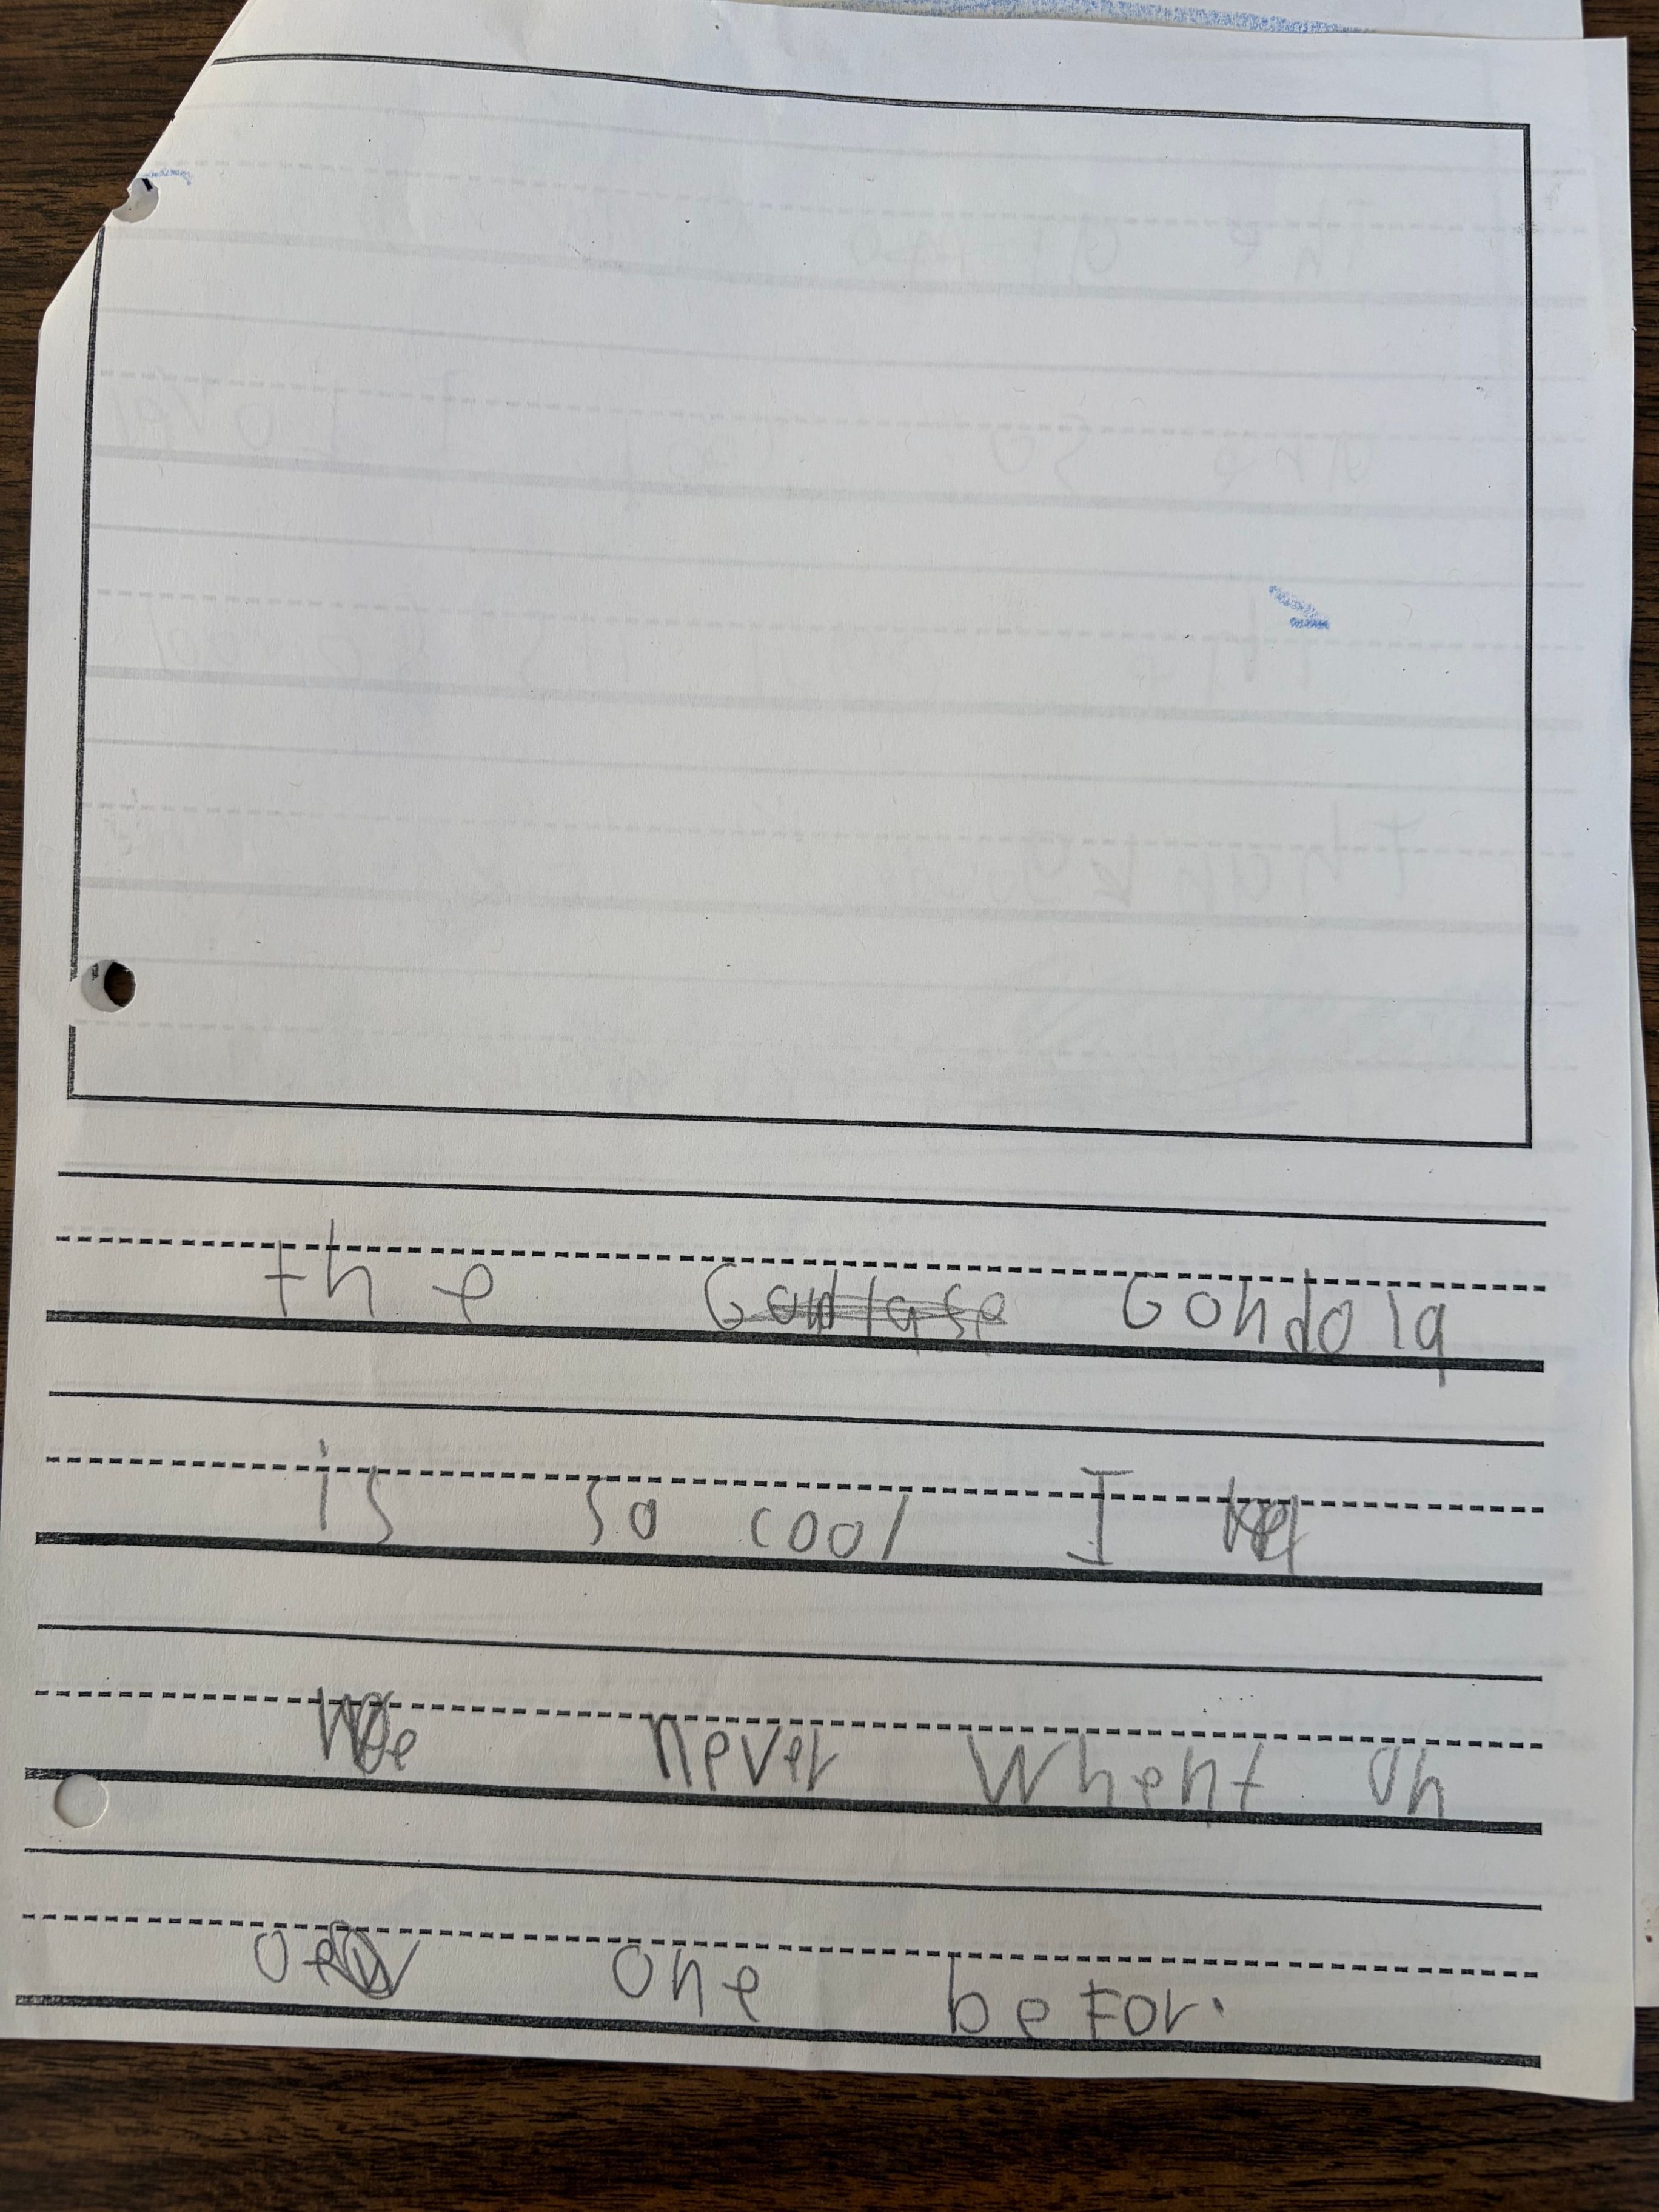 the Gondola
is so cool I
We never whent on
one befor.